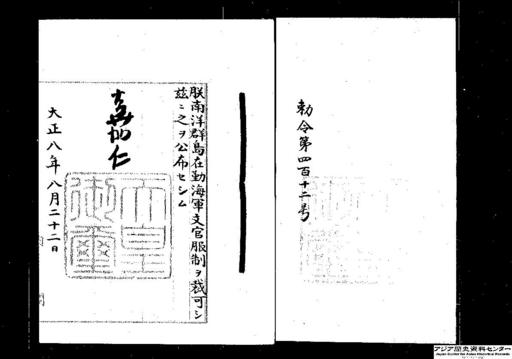 勅令第四百十二号
朕南洋群島在勤海軍文官服制ヲ裁可シ
茲ニ之ヲ公布セシム
嘉仁
天皇御璽
大正八年八月二十二日
アジア歴史資料センター
Japan Center for Asian Historical Records